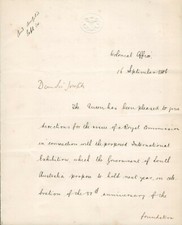 Colonial Office,
16 September 188
Dear Lr Smith
The Queen has been pleased to give
directions for the issue of a Royal Commission
in connection with the proposed International
Exhibition which the Government of South
Australia propose to hold next year, in cele
bration of the 50th anniversary of the
foundation